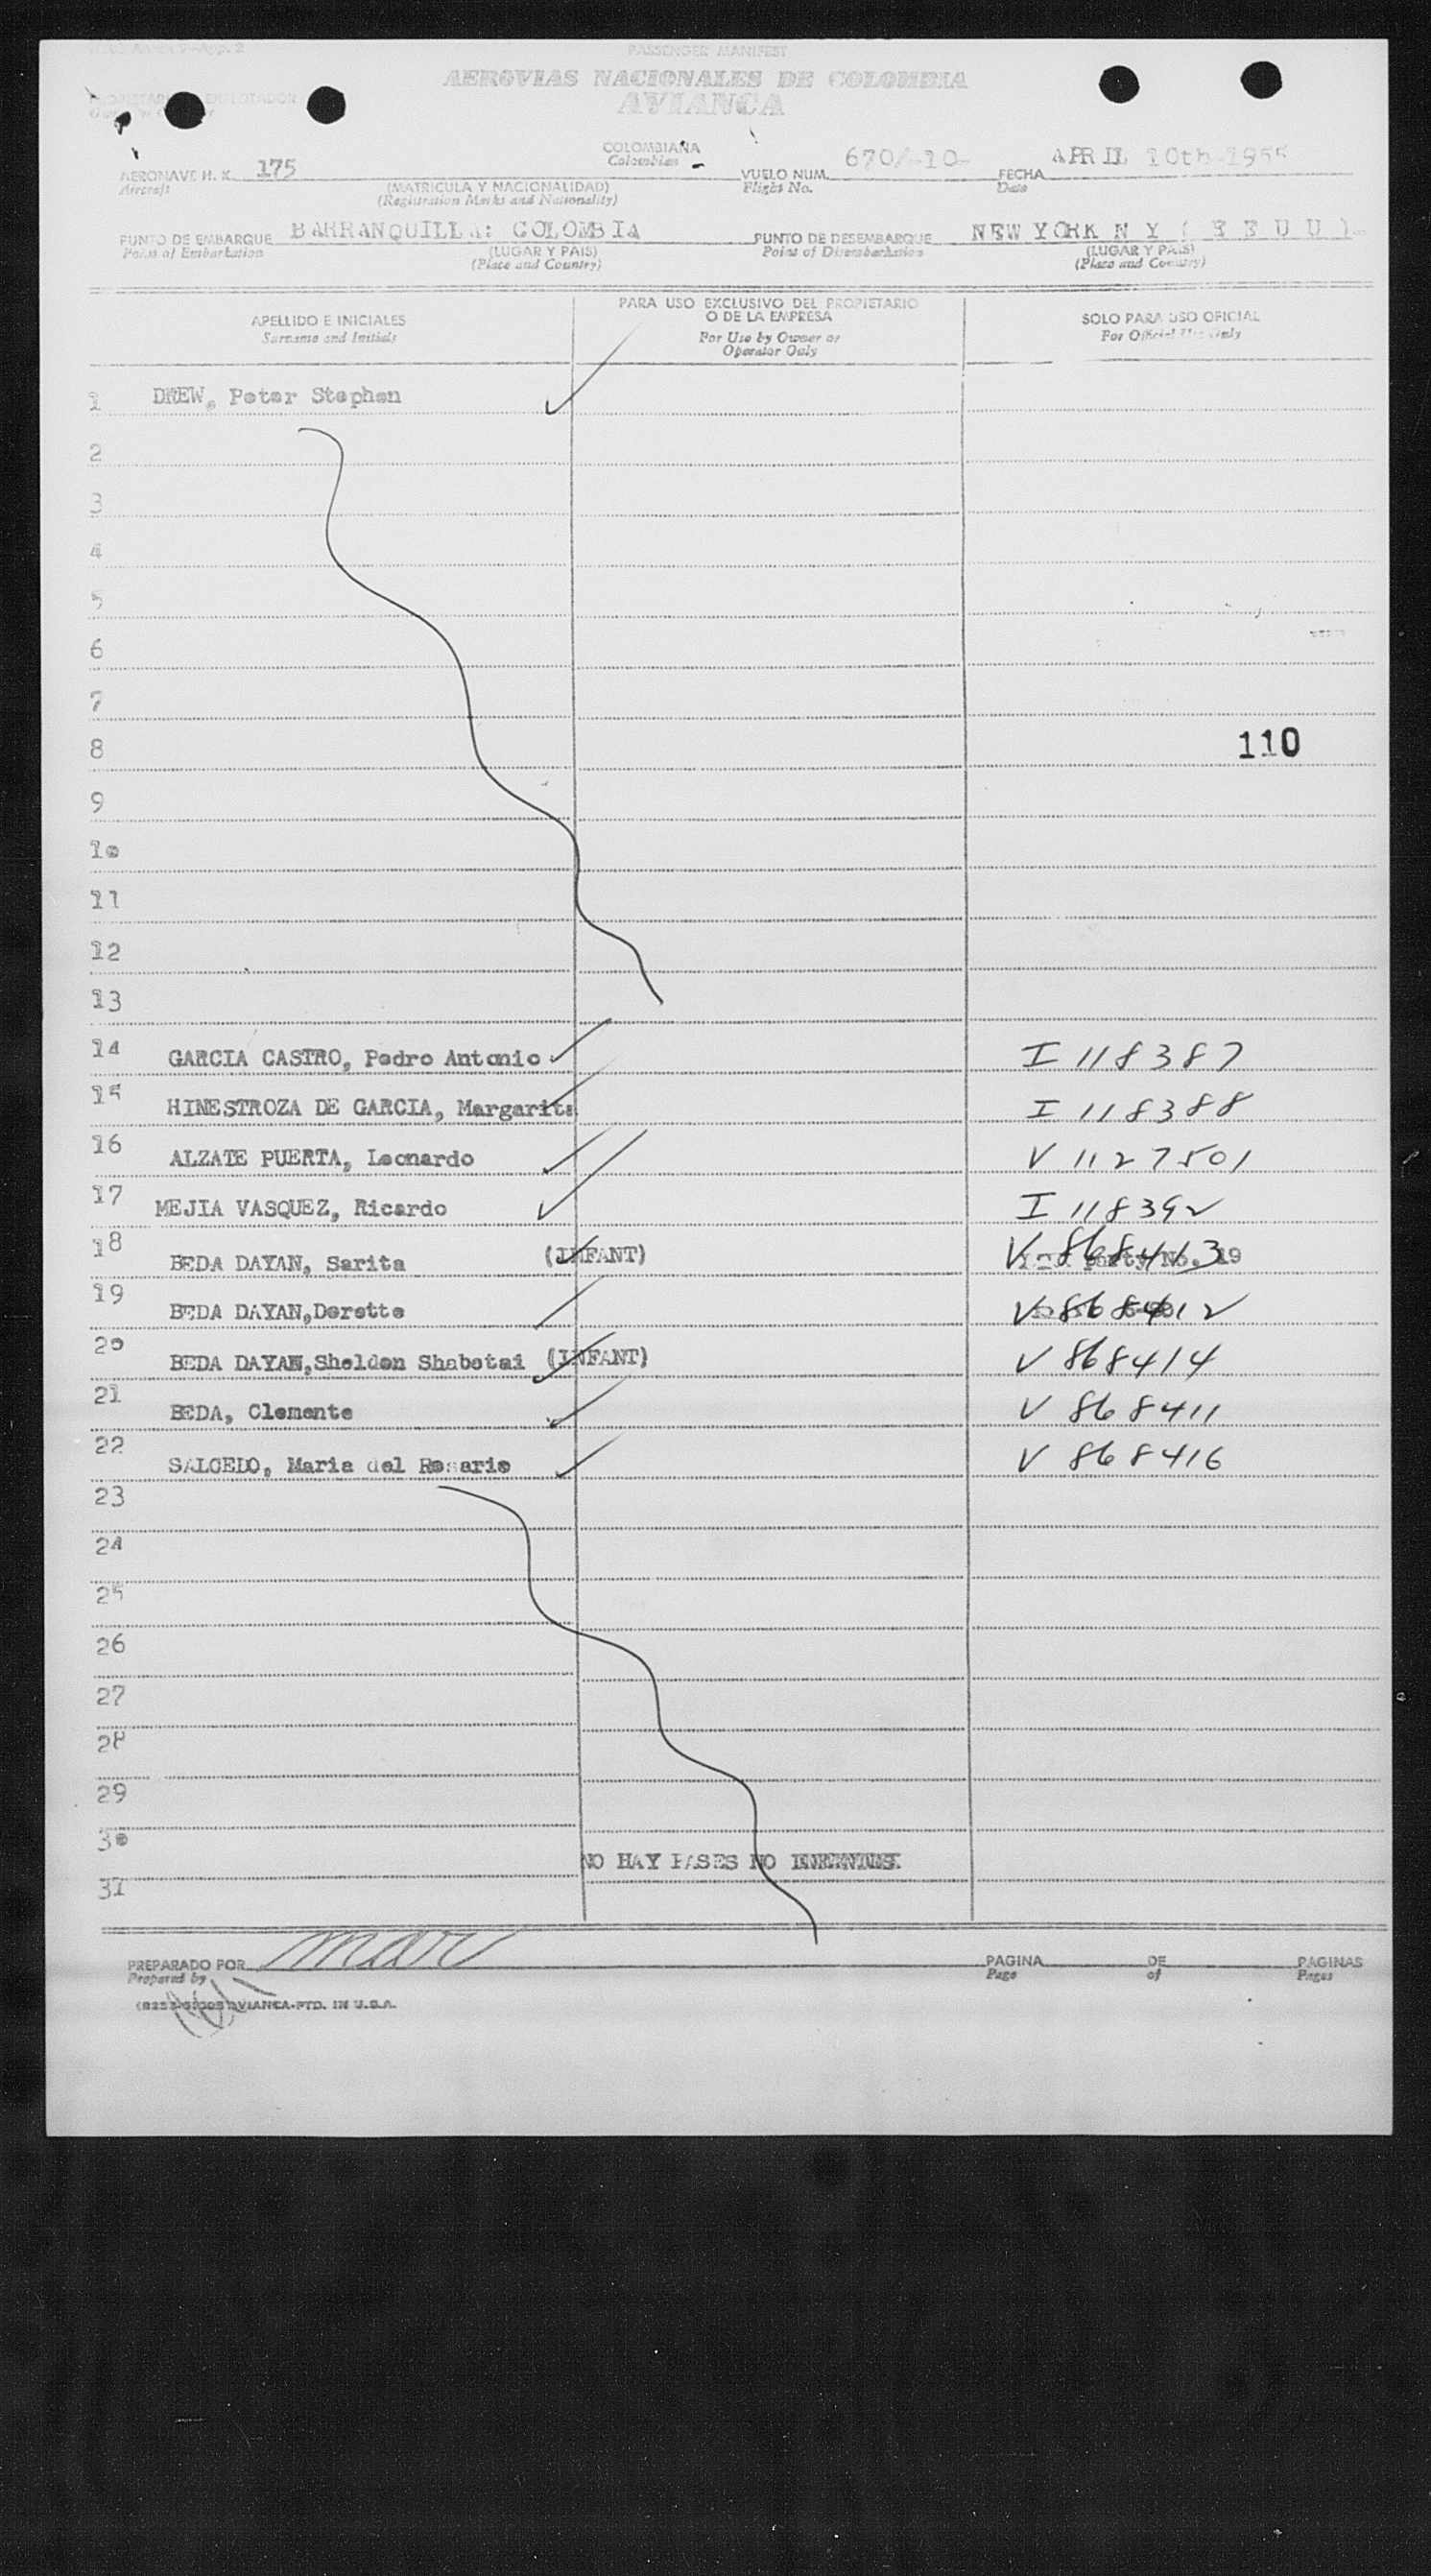 PASSENGER MANIFEST
AEROVIAS NACIONALES DE COLOMBIA
AVIANCA
COLOMBIANA
Colombian
AERONAVE H. K. 175
Aircraft
(MATRICULA Y NACIONALIDAD)
(Registration Marks and Nationality)
VUELO NUM. 670/-10-
Flight No.
FECHA APRIL 10th-1955
Date
PUNTO DE EMBARQUE BARRANQUILLA: COLOMBIA
Point of Embarkation
(LUGAR Y PAIS)
(Place and Country)
PUNTO DE DESEMBARQUE NEW YORK N Y ( E E U U )
Point of Disembarkation
(LUGAR Y PAIS)
(Place and Country)
APELLIDO E INICIALES
Surname and Initials
PARA USO EXCLUSIVO DEL PROPIETARIO
O DE LA EMPRESA
For Use by Owner or
Operator Only
SOLO PARA USO OFICIAL
For Official Use Only
1 DREW, Peter Stephen
2
3
4
5
6
7
8 110
9
10
11
12
13
14 GARCIA CASTRO, Pedro Antonio I 118387
15 HINESTROZA DE GARCIA, Margarita I 118388
16 ALZATE PUERTA, Leonardo V 1127501
17 MEJIA VASQUEZ, Ricardo I 118392
18 BEDA DAYAN, Sarita (INFANT) V 868413 No. 19
19 BEDA DAYAN,Dorette V 868412
20 BEDA DAYAN,Sheldon Shabetai (INFANT) V 868414
21 BEDA, Clemente V 868411
22 SALCEDO, Maria del Rosario V 868416
23
24
25
26
27
28
29
30
NO HAY PASES NO
31
PREPARADO POR mar
Prepared by
PAGINA DE PAGINAS
Page of Pages
AVIANCA-PTD. IN U.S.A.